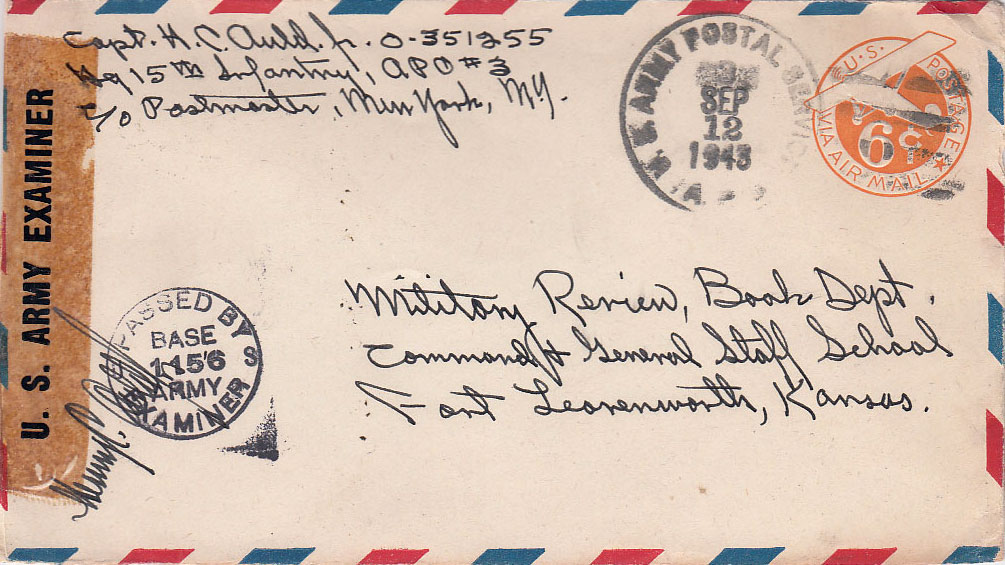 Capt. H. C. Auld. Jr. O-351255
Hq 15th Infantry, APO #3
c/o Postmaster, New York, N.Y.
U.S. ARMY POSTAL SERVICE
SEP
12
1943
U.S. POSTAGE
6¢
VIA AIR MAIL
U. S. ARMY EXAMINER
PASSED BY
BASE
1156
ARMY
EXAMINER
Military Review, Book Dept.
Command & General Staff School
Fort Leavenworth, Kansas.